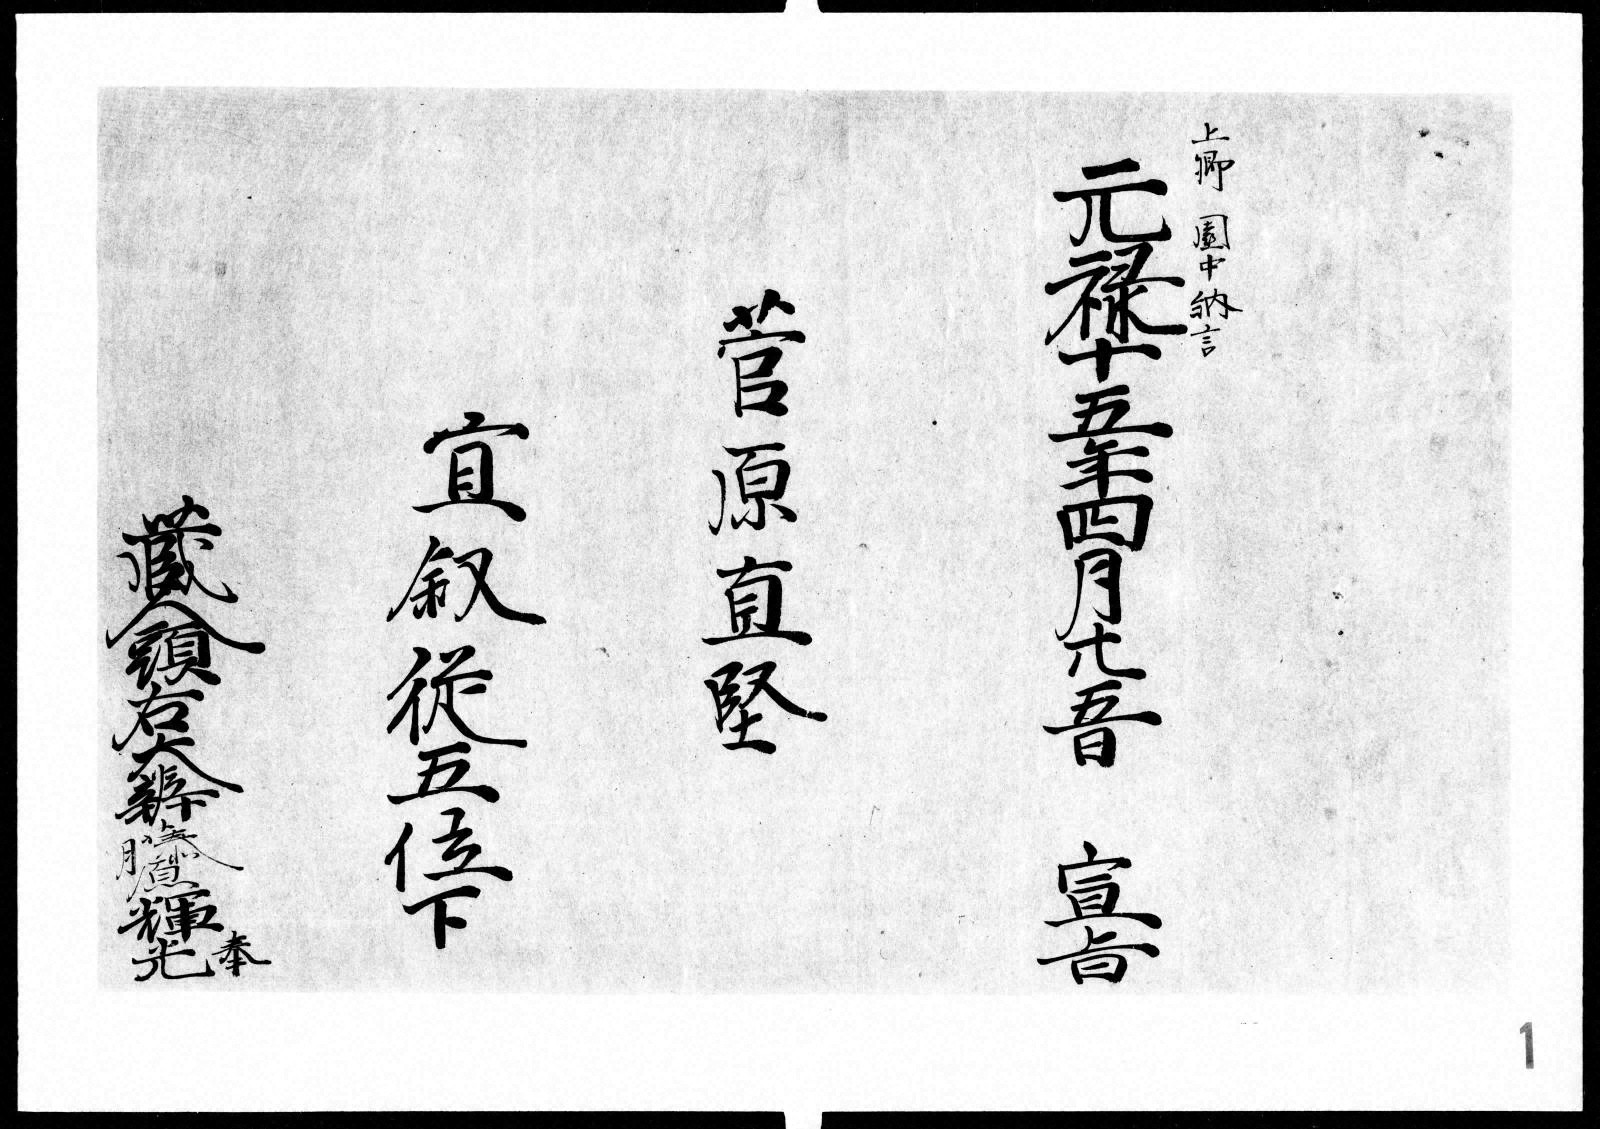 上卿 園中納言
元禄十五年四月廿五日 宣旨
菅原直堅
宜叙従五位下
蔵人頭右大辨藤原輝光奉
1